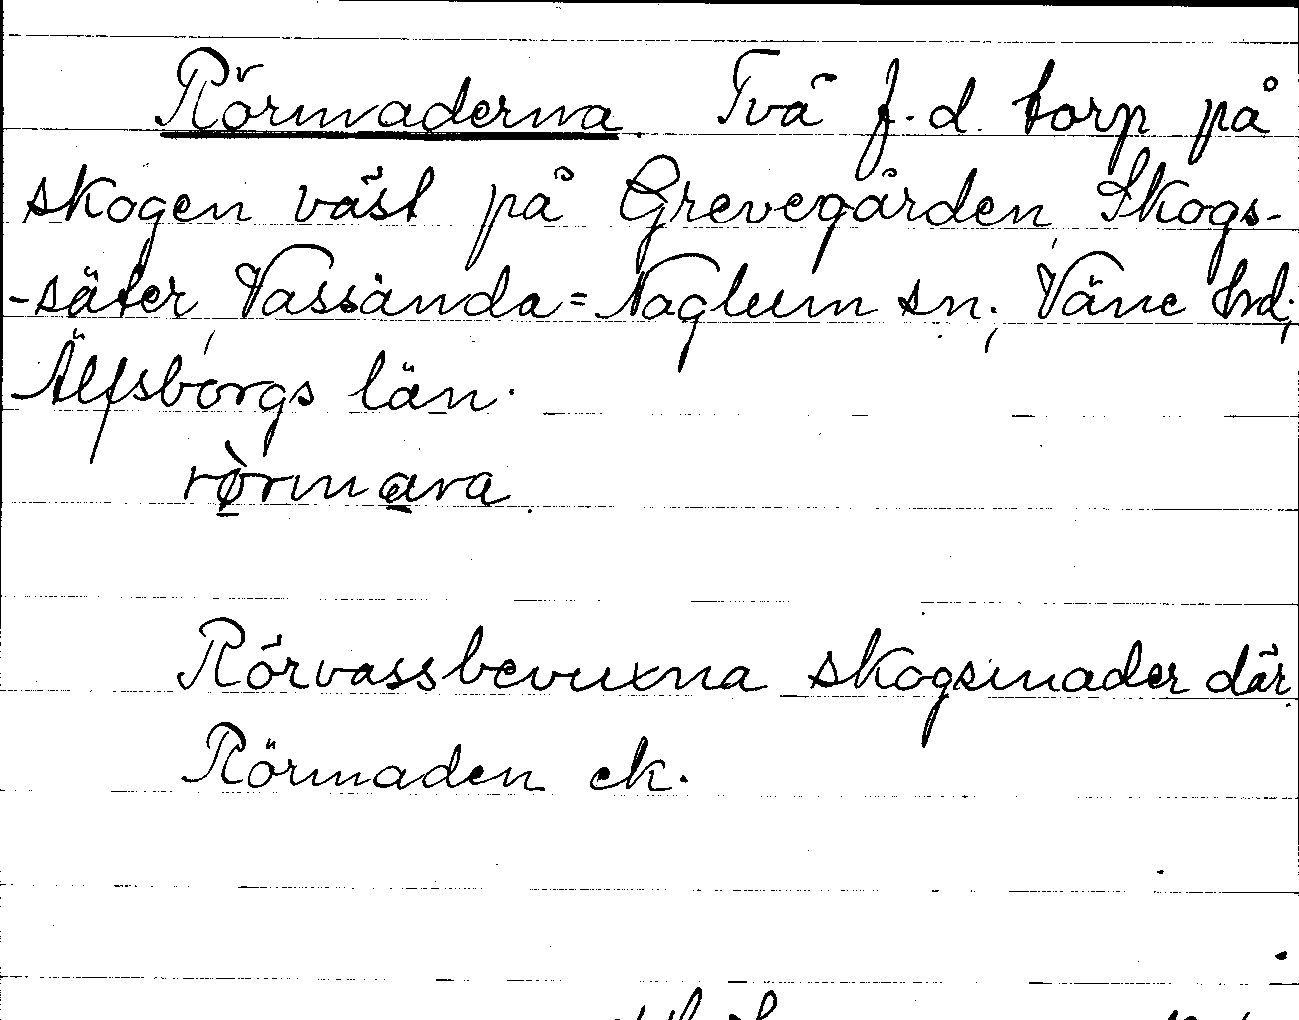 Rörmaderna. Två f.d. torp på
skogen väst på Grevegården, Skogs-
-säter, Vassända=Naglum sn; Väne hd;
Älfsborgs län.
rø̀rmara.
Rörvassbevuxna skogsmader där.
Rörmaden ek.